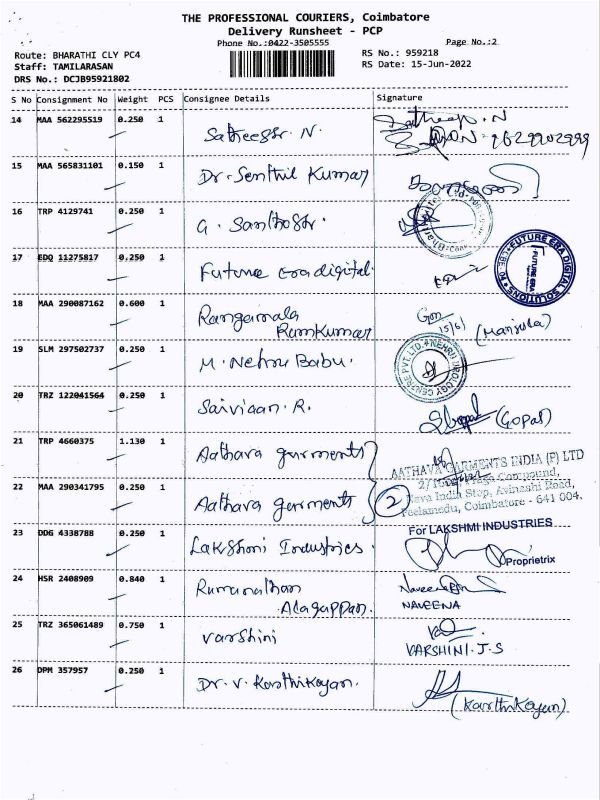 THE PROFESSIONAL COURIERS, Coimbatore
Delivery Runsheet - PCP
Phone No.:0422-3505555 Page No.:2
Route: BHARATHI CLY PC4 RS No.: 959218
Staff: TAMILARASAN RS Date: 15-Jun-2022
DRS No.: DCJB95921802
S No Consignment No Weight PCS Consignee Details Signature
14 MAA 562295519 0.250 1
Satheesh. N.
15 MAA 565831101 0.150 1
Dr. Senthil Kumar
16 TRP 4129741 0.250 1
G. Santhosh.
17 EDQ 11275817 0.250 1
Future Era digital.
FUTURE ERA DIGITAL SOLUTIONS
18 MAA 290087162 0.600 1
Rangamala
Ramkumar
15/6/
(Manjula)
19 SLM 297502737 0.250 1
M. Nehru Babu.
NEHRU UROLOGY CENTRE PVT LTD.
20 TRZ 122041564 0.250 1
Saiviaan. R.
(Gopal)
21 TRP 4660375 1.130 1
Aathava garments
AATHAVA GARMENTS INDIA (P) LTD
Compound,
22 MAA 290341795 0.250 1
Aathava garments
2
India Stop, Avinashi Road,
Peelamedu, Coimbatore - 641 004.
23 DDG 4338788 0.250 1
Lakshmi Industries.
For LAKSHMI INDUSTRIES
Proprietrix
24 HSR 2408909 0.840 1
Ramanathan
Alagappan.
NAVEENA
25 TRZ 365061489 0.750 1
varshini
VARSHINI. J. S
26 DPM 357957 0.250 1
Dr. V. Karthikayan.
(Karthikayan)